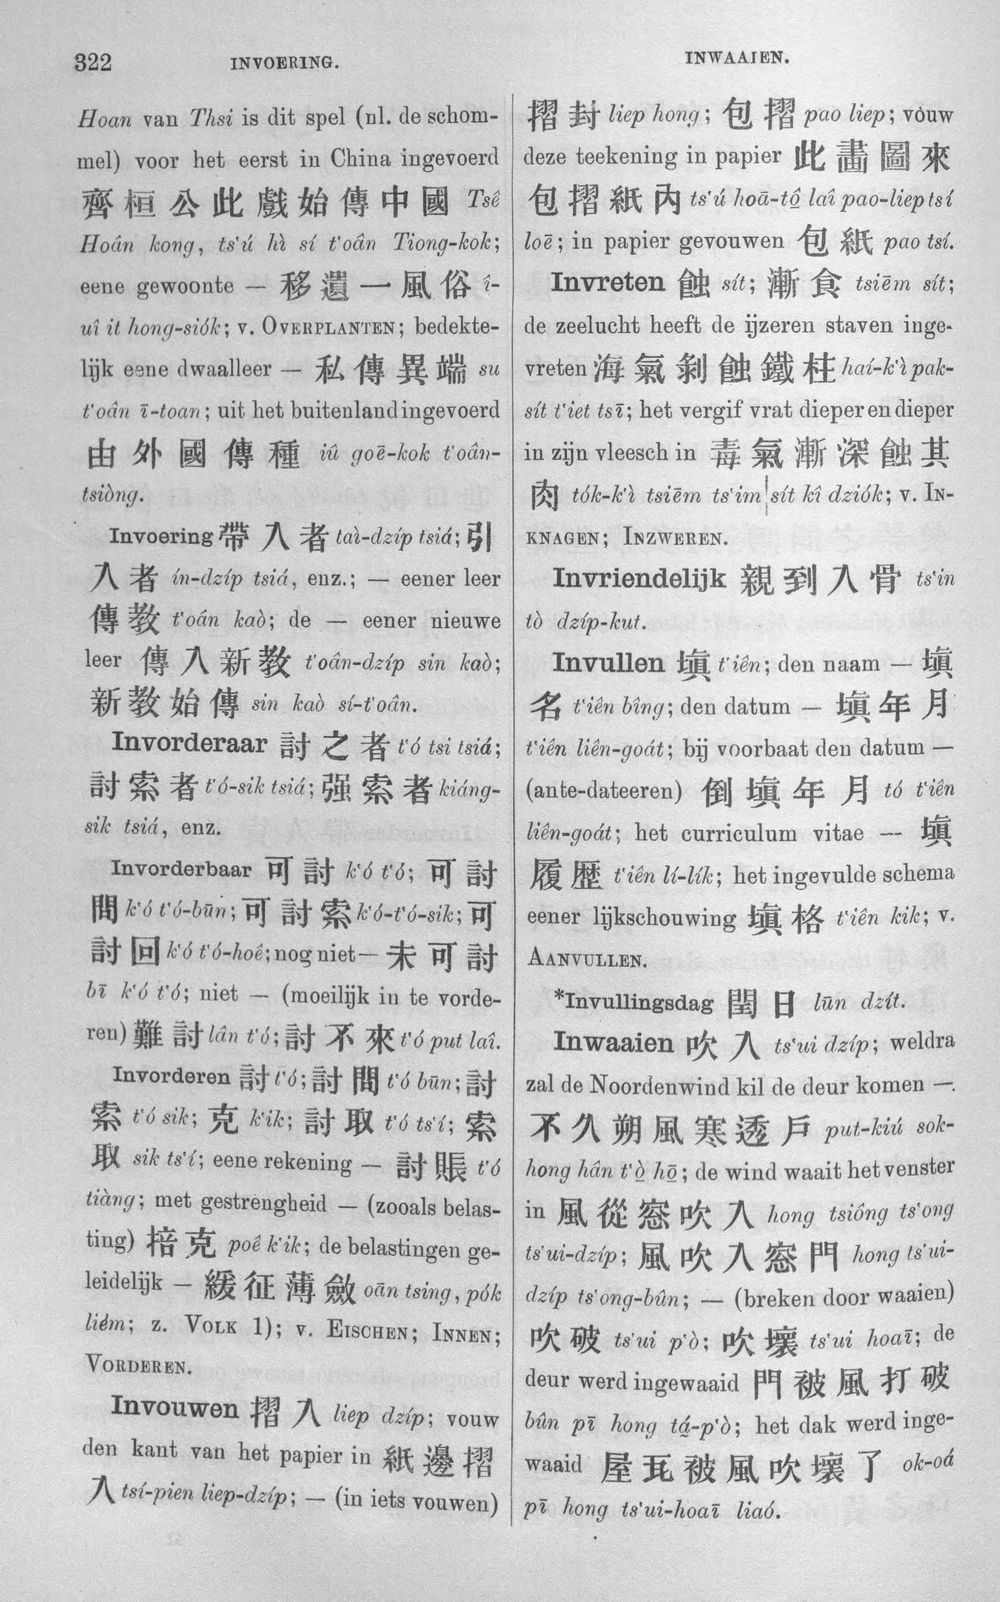 322
INVOERING.
INWAAIEN.
Hoan van Thsi is dit spel (nl. de schom-
mel) voor het eerst in China ingevoerd
齊桓公此戲始傳中國 Tsê
Hoân kong, ts‘ú hì sí t‘oân Tiong-kok;
eene gewoonte — 移遺一風俗 î-
uî it hong-siók; v. OVERPLANTEN; bedekte-
lijk eene dwaalleer — 私傳異端 su
t‘oân ī-toan; uit het buitenland ingevoerd
由外國傳種 iû goē-kok t‘oân-
tsiòng.
Invoering 帶入者 taì-dzíp tsiá; 引
入者 ín-dzíp tsiá, enz.; — eener leer
傳教 t‘oân kaò; de — eener nieuwe
leer 傳入新教 t‘oân-dzíp sin kaò;
新教始傳 sin kaò sí-t‘oân.
Invorderaar 討之者 t‘ó tsi tsiá;
討索者 t‘ó-sik tsiá; 强索者 kiáng-
sik tsiá, enz.
Invorderbaar 可討 k‘ó t‘ó; 可討
問 k‘ó t‘ó-būn; 可討索 k‘ó-t‘ó-sik; 可
討回 k‘ó t‘ó-hoê; nog niet — 未可討
bī k‘ó t‘ó; niet — (moeilijk in te vorde-
ren) 難討 lân t‘ó; 討不來 t‘ó put laî.
Invorderen 討 t‘ó; 討問 t‘ó būn; 討
索 t‘ó sik; 克 k‘ik; 討取 t‘ó ts‘í; 索
取 sik ts‘í; eene rekening — 討賬 t‘ó
tiàng; met gestrengheid — (zooals belas-
ting) 掊克 poê k‘ik; de belastingen ge-
leidelijk — 緩征薄斂 oān tsing, pók
liém; z. VOLK 1); v. EISCHEN; INNEN;
VORDEREN.
Invouwen 摺入 liep dzíp; vouw
den kant van het papier in 紙邊摺
入 tsí-pien liep-dzíp; — (in iets vouwen)
摺封 liep hong; 包摺 pao liep; vouw
deze teekening in papier 此畵圖來
包摺紙內 ts‘ú hoā-tô laî pao-liep tsí
loē; in papier gevouwen 包紙 pao tsí.
Invreten 蝕 sít; 漸食 tsiēm sít;
de zeelucht heeft de ijzeren staven inge-
vreten 海氣剝蝕鐵柱 haí-k‘ì pak-
sít t‘iet tsī; het vergif vrat dieper en dieper
in zijn vleesch in 毒氣漸深蝕其
肉 tók-k‘ì tsiēm ts‘im sít kî dziók; v. IN-
KNAGEN; INZWEREN.
Invriendelijk 親到入骨 ts‘in
tò dzíp-kut.
Invullen 塡 t‘iên; den naam — 塡
名 t‘iên bîng; den datum — 塡年月
t‘iên liên-goát; bij voorbaat den datum —
(ante-dateeren) 倒塡年月 tó t‘iên
liên-goát; het curriculum vitae — 塡
履歷 t‘iên lí-lík; het ingevulde schema
eener lijkschouwing 塡格 t‘iên kik; v.
AANVULLEN.
*Invullingsdag 閏日 lūn dzít.
Inwaaien 吹入 ts‘ui dzíp; weldra
zal de Noordenwind kil de deur komen —.
不久朔風寒透戶 put-kiú sok-
hong hân t‘ò hō; de wind waait het venster
in 風從窓吹入 hong tsióng ts‘ong
ts‘ui-dzíp; 風吹入窓門 hong ts‘ui-
dzíp ts‘ong-bûn; — (breken door waaien)
吹破 ts‘ui p‘ò; 吹壞 ts‘ui hoaī; de
deur werd ingewaaid 門被風打破
bûn pī hong tá-p‘ò; het dak werd inge-
waaid 屋瓦被風吹壞了 ok-oá
pī hong ts‘ui-hoaī liaó.